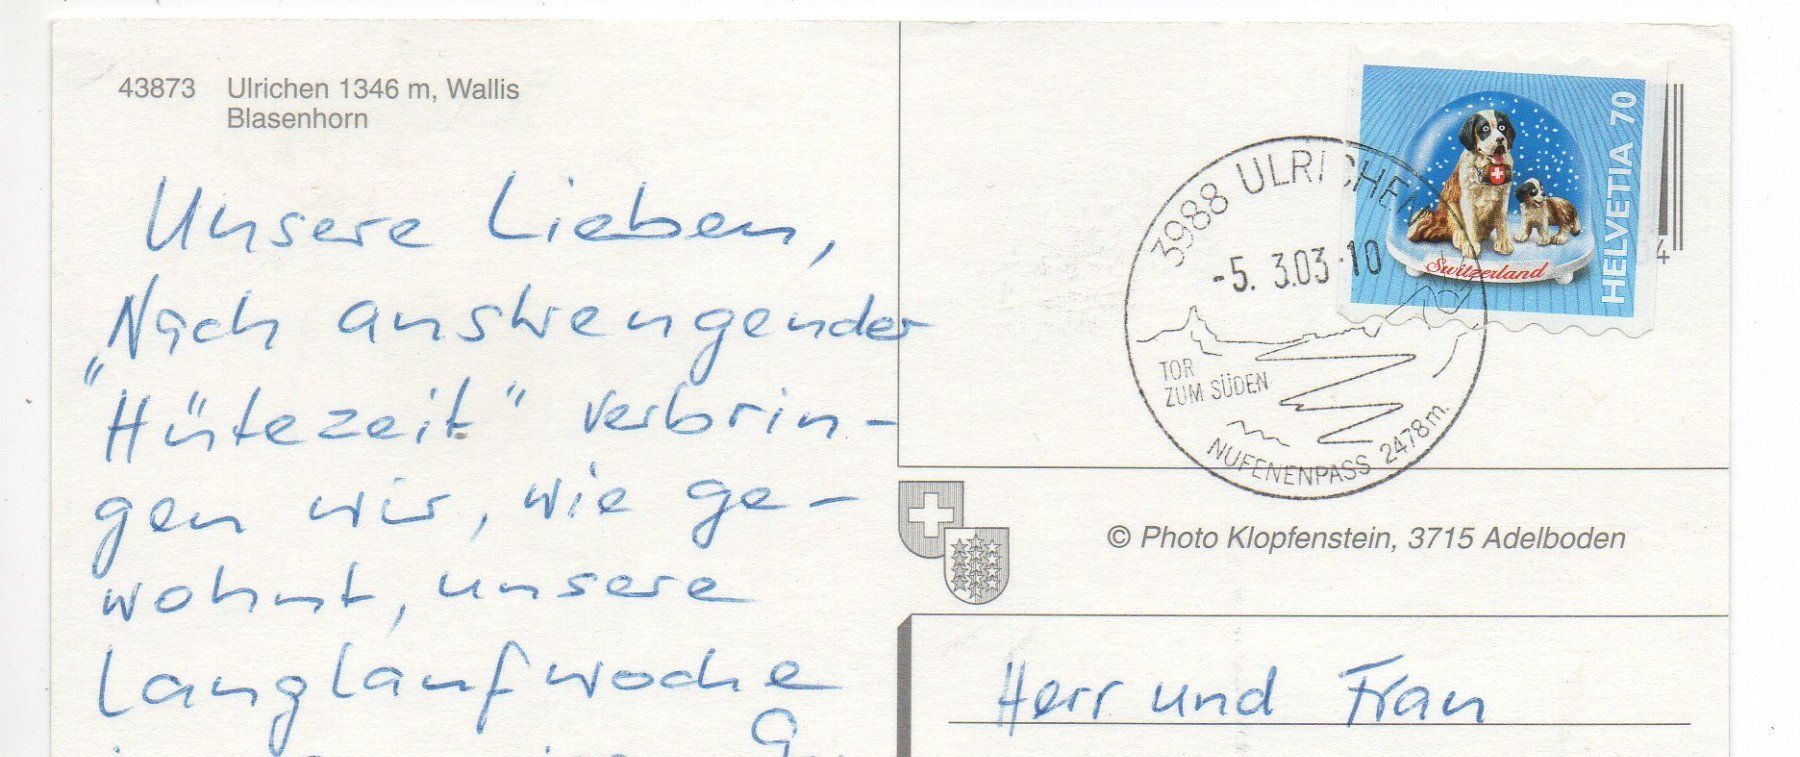 43873 Ulrichen 1346 m, Wallis
Blasenhorn
Unsere Lieben,
Nach anstrengender
"Hütezeit" verbrin-
gen wir, wie ge-
wohnt, unsere
Langlaufwoche
3988 ULRICHEN
-5. 3.03-10
TOR
ZUM SÜDEN
NUFENENPASS 2478m.
HELVETIA 70
Switzerland
4
© Photo Klopfenstein, 3715 Adelboden
Herr und Frau